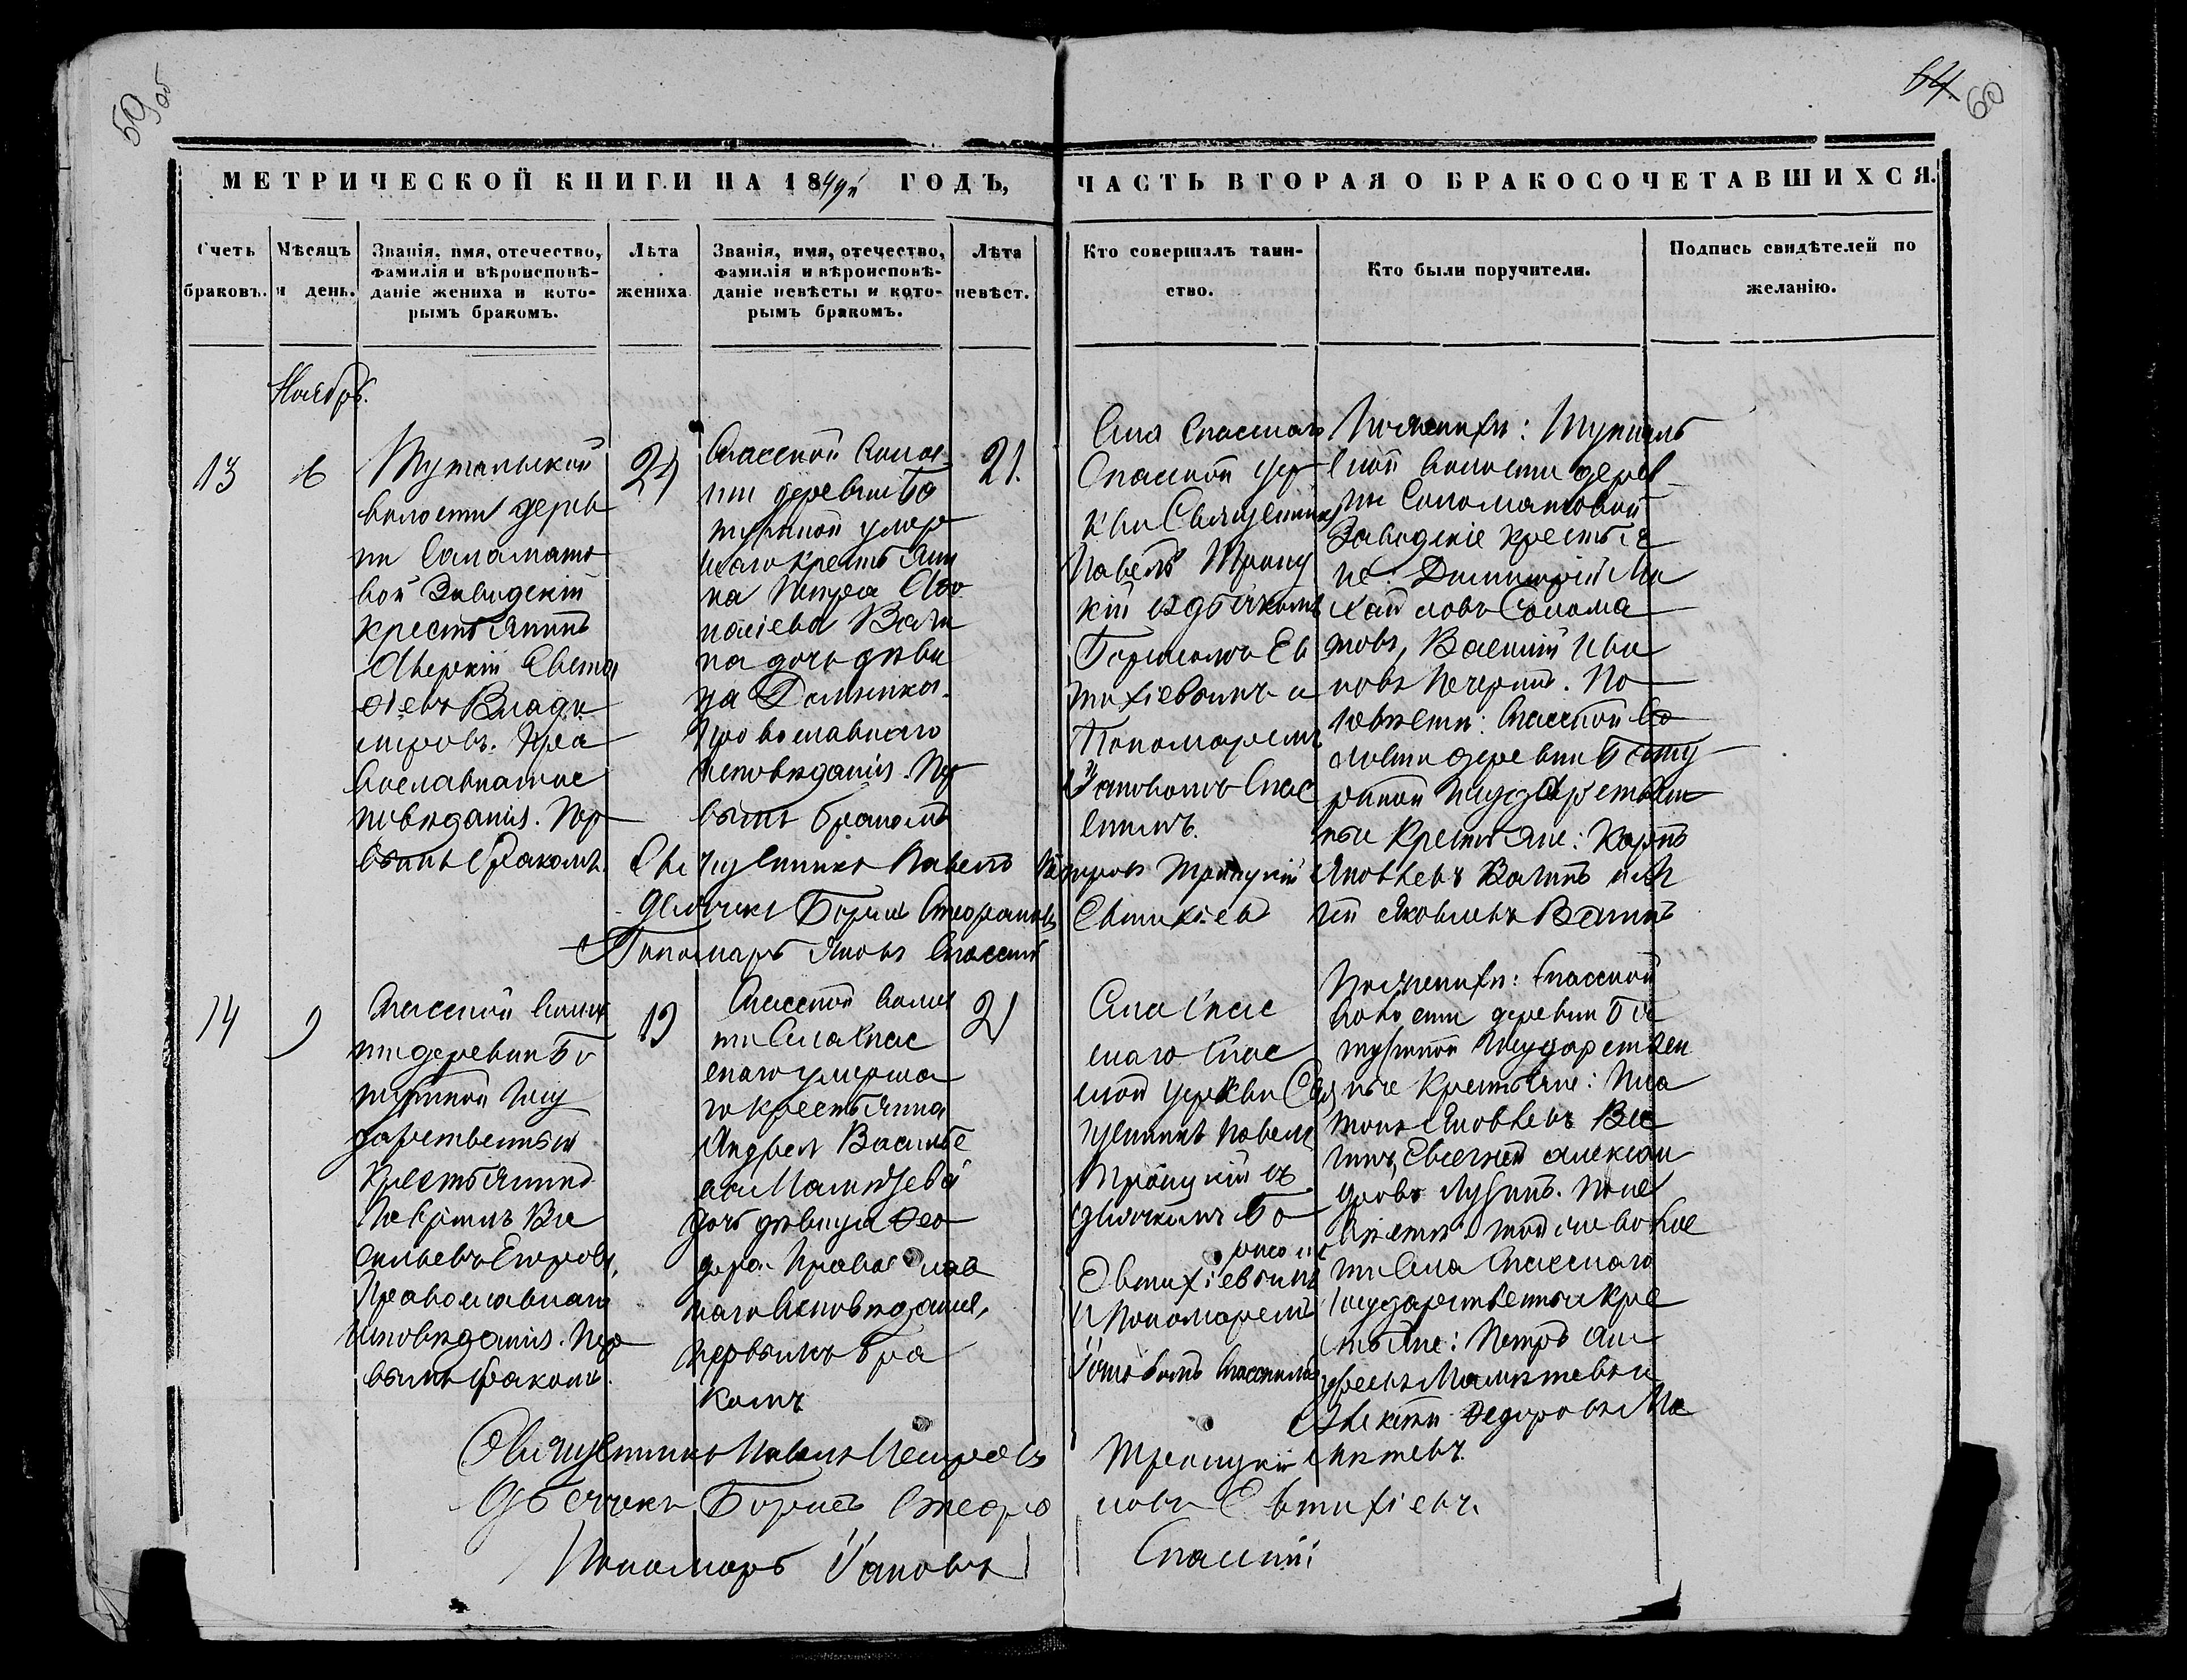 59 об
64. 60
МЕТРИЧЕСКОЙ КНИГИ НА 1849й ГОДЪ,
ЧАСТЬ ВТОРАЯ О БРАКОСОЧЕТАВШИХСЯ.
Счетъ
браковъ.
Мѣсяцъ
и день.
Званія, имя, отечество,
фамилія и вѣроисповѣ-
даніе жениха и кото-
рымъ бракомъ.
Лѣта
жениха
Званія, имя, отечество,
фамилія и вѣроисповѣ-
даніе невѣсты и кото-
рымъ бракомъ.
Лѣта
невѣст.
Кто совершалъ таин-
ство.
Кто были поручители.
Подпись свидѣтелей по
желанію.
Ноябрь.
13
6
Тутальской
волости дерев
ни Саламато
вой Заводскій
крестьянинъ
Аверкій Евста
фіевъ Влади
мировъ. Пра
вославнагоис
повѣданія. Пер
вымъ бракомъ.
24
Спасской волос
ти деревни Ба
туриной умер
шаго крестьяни
на Петра
Вали
на дочь дѣви
ца Домника.
Православнаго
исповѣданія. Пер
вымъ бракомъ
21.
Села Спаскаго
Спаской цер
кви Священникъ
Павелъ Троиц
кій съ дьячкомъ
Борисомъ Ев
тихіевымъ и
Пономаремъ
Іаковомъ Спас
скимъ.
По женихѣ: Туталь
ской волости дерев
ни Соломатовой
Заводскіе крестья
не: Димитрій Ми
хайловъ Солома
товъ, Василій Ива
новъ Печеринъ. По
невѣсти: Спасской во
лости деревни Бату
риной Государствен
ные Крестьяне: Карпъ
Яковлевъ Валинъ и
Яковлевъ Валинъ
Священникъ Павелъ Петровъ Троицкій
Дьячекъ Борисъ Стефановъ Евтихіев
Пономарь Яковъ Спасскій
14
9
Спасской волос
ти деревни Ба
туриной Госу
дарственный
Крестьянинъ
Лаврентій Ва
сильевъ Егоровъ,
Православнаго
исповѣданія. Пер
вымъ бракомъ.
19
Спасской волос
ти Села Спас
скаго умерша
го крестьянина
Андрея Василье
ва Мамѣтева
дочь дѣвица Ѳео
дора. Православ
наго исповѣданія,
первымъ бра
комъ
21
Села Спас
скаго Спас
ской церкви Свя
щенникъ Павелъ
Троицкій съ
дьячкомъ Бо
рисомъ
Евтихіевымъ
и Пономаремъ
Іаковомъ Спасскимъ
По женихѣ: Спасской
волости деревни Ба
туриной Государствен
ные Крестьяне: Пла
тонъ Яковлевъ Ва
линъ, Евсегній Алексан
дровъ Лубинъ. По не
вѣсти: той же волос
ти Села Спасскаго
Государственные Кре
стьяне: Петръ Ан
древъ Мамѣтевъ и
Ѳедоровъ Ма
мѣтевъ.
Священникъ Павелъ Петровъ Троицкій
Дьячекъ Борисъ Стефановъ Евтихіевъ.
Пономарь Іаковъ Спасскій